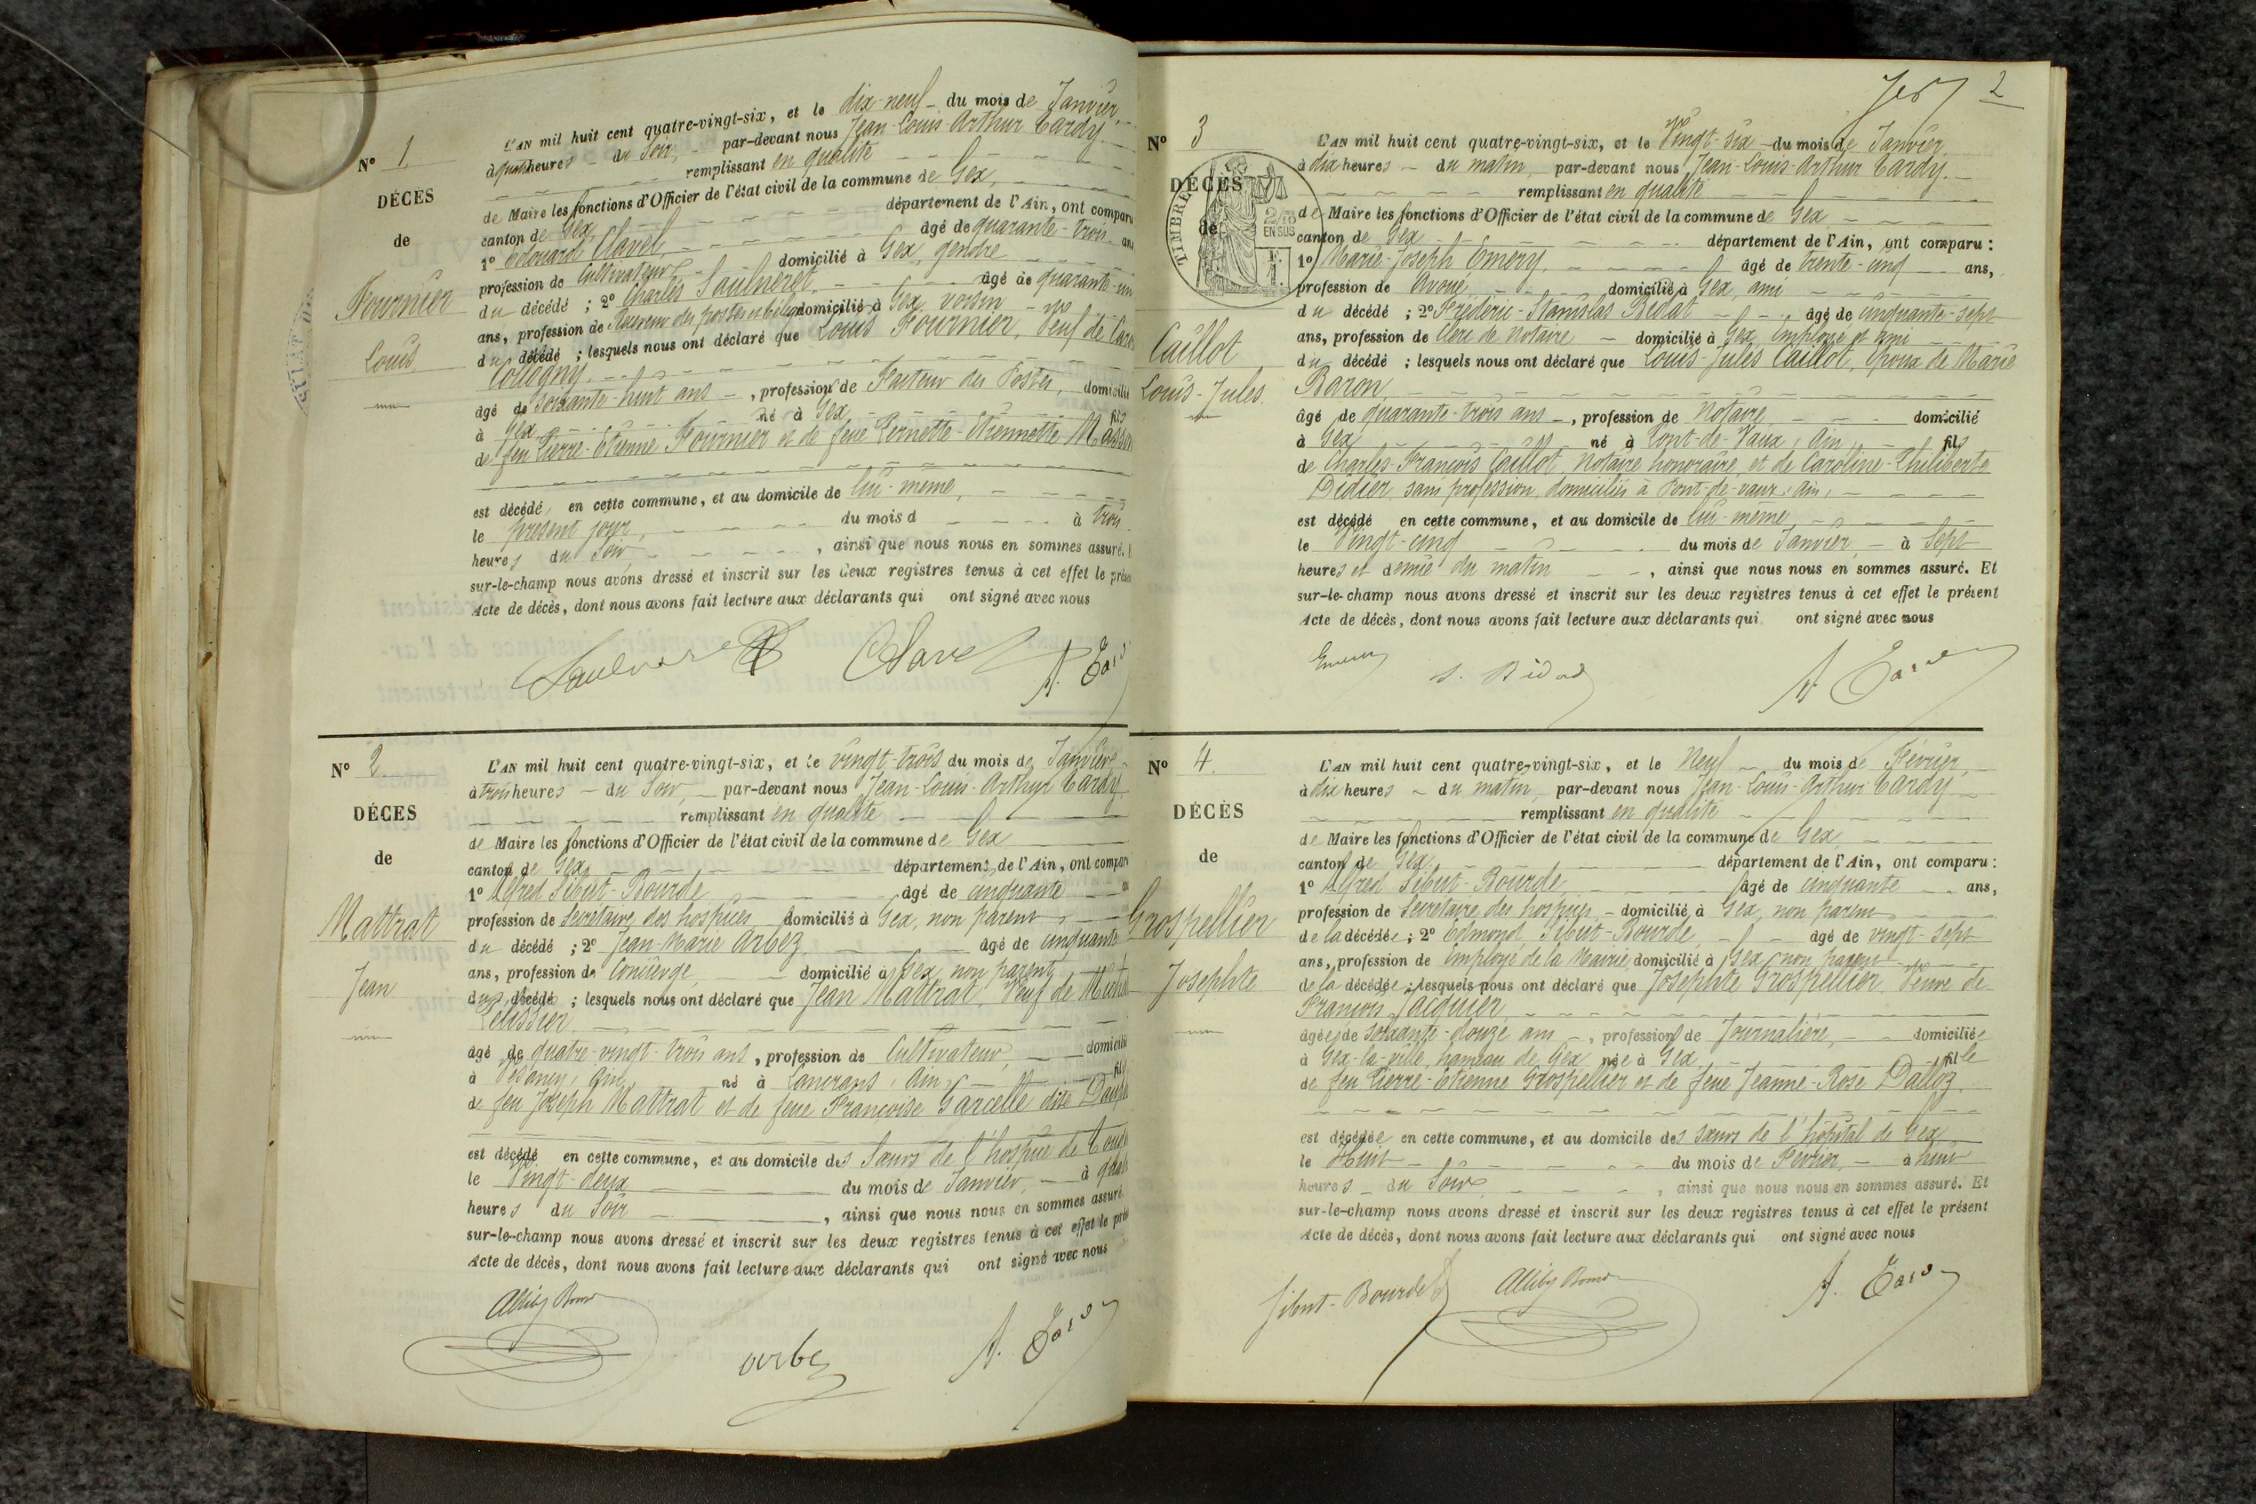 N° 1
DÉCES
de
Fournier
Louis
L'AN mil huit cent quatre-vingt-six, et le dix-neuf du mois de Janvier,
à quatre heures du Soir, par-devant nous Jean-Louis-Arthur Tardy
remplissant en qualité
de Maire les fonctions d'Officier de l'état civil de la commune de Gex,
canton de Gex, département de l'Ain, ont comparu
1° Edouard Clavel, âgé de quarante-trois ans
profession de Cultivateur domicilié à Gex, gendre
du décédé ; 2° Charles Saulneret, âgé de quarante-un
ans, profession de Receveur des postes et domicilié à Gex voisin
du décédé ; lesquels nous ont déclaré que Louis Fournier, Veuf de
Collogny.
âgé de soixante-huit ans, profession de Facteur des Postes, domicilié
à Gex né à Gex fils
de feu Pierre-Etienne Fournier et de feue Pernette-Etiennette Masson
est décédé, en cette commune, et au domicile de lui-même,
le présent jour, du mois d à trois
heures du Soir, ainsi que nous nous en sommes assuré. E
sur-le-champ nous avons dressé et inscrit sur les deux registres tenus à cet effet le présen
Acte de décès, dont nous avons fait lecture aux déclarants qui ont signé avec nous
Saulneret Clavel A. Tardy
N° 2
DÉCES
de
Mattrat
Jean
L'AN mil huit cent quatre-vingt-six, et le vingt-trois du mois de Janvier
à trois heures du Soir, par-devant nous Jean-Louis-Arthur Tardy
remplissant en qualité
de Maire les fonctions d'Officier de l'état civil de la commune de Gex
canton de Gex, département de l'Ain, ont compar
1° Alfred Sibut-Bourde âgé de cinquante
profession de Secrétaire des hospices domicilié à Gex, non parent
du décédé ; 2° Jean Marie Arbez âgé de cinquante
ans, profession de Concierge, domicilié à Gex non parent
du décédé ; lesquels nous ont déclaré que Jean Mattrat, Veuf de
Pelissier
âgé de quatre-vingt-trois ans, profession de Cultivateur, domicilié
à Vesancy, Ain, né à Lancrans, Ain, fils
de feu Joseph Mattrat et de feue Françoise Garcelle dite
est décédé en cette commune, et au domicile des Sœurs de l'hospice de
le Vingt-deux du mois de Janvier, à
heures du Soir, ainsi que nous nous en sommes assuré.
sur-le-champ nous avons dressé et inscrit sur les deux registres tenus à cet effet le prés
Acte de décès, dont nous avons fait lecture aux déclarants qui ont signé avec nous
arbez A. Tardy
2
N° 3
DÉCES
de
TIMBRE
2/10 EN SUS
Caillot
Louis-Jules
L'AN mil huit cent quatre-vingt-six, et le Vingt-six du mois de Janvier
à dix heures du matin, par-devant nous Jean-Louis-Arthur Tardy.
remplissant en qualité
de Maire les fonctions d'Officier de l'état civil de la commune de Gex
canton de Gex département de l'Ain, ont comparu :
1° Marie-Joseph Emery, âgé de trente-cinq ans,
profession de Avoué, domicilié à Gex, ami
du décédé ; 2° Frédéric-Stanislas Bidat âgé de cinquante-sept
ans, profession de Clerc de Notaire domicilié à Gex, employé et ami
du décédé ; lesquels nous ont déclaré que Louis-Jules Caillot, époux de Marie
Baron,
âgé de quarante-trois ans, profession de Notaire domicilié
à Gex né à Pont-de-Vaux, Ain, fils
de Charles-François Caillot, Notaire honoraire, et de Caroline-Philiberte
Didier, sans profession, domiciliés à Pont-de-vaux, Ain,
est décédé en cette commune, et au domicile de lui-même,
le Vingt-cinq du mois de Janvier, à Sept
heures et demie du matin, ainsi que nous nous en sommes assuré. Et
sur-le-champ nous avons dressé et inscrit sur les deux registres tenus à cet effet le présent
Acte de décès, dont nous avons fait lecture aux déclarants qui ont signé avec nous
Emery S. Bidat A. Tardy
N° 4
DÉCÈS
de
Grospellier
Josephte
L'AN mil huit cent quatre-vingt-six, et le Neuf du mois de Février,
à dix heures du matin, par-devant nous Jean-Louis-Arthur Tardy
remplissant en qualité
de Maire les fonctions d'Officier de l'état civil de la commune de Gex,
canton de Gex département de l'Ain, ont comparu :
1° Alfred Sibut-Bourde, âgé de cinquante ans,
profession de Secrétaire des hospices, domicilié à Gex, non parent
de la décédée ; 2° Edmond Sibut-Bourde, âgé de vingt-sept
ans, profession de Employé de la Mairie, domicilié à Gex, non parent
de la décédée ; lesquels nous ont déclaré que Josephte Grospellier, Veuve de
François Jacquier,
âgée de soixante-douze ans, profession de Journalière, domiciliée
à Gex-la-ville, hameau de Gex née à Gex fille
de feu Pierre-Etienne Grospellier et de feue Jeanne-Rose Dalloz.
est décédée en cette commune, et au domicile des sœurs de l'hôpital de Gex
le Huit du mois de Février, à huit
heures du Soir, ainsi que nous nous en sommes assuré. Et
sur-le-champ nous avons dressé et inscrit sur les deux registres tenus à cet effet le présent
Acte de décès, dont nous avons fait lecture aux déclarants qui ont signé avec nous
Sibut-Bourde A. Tardy